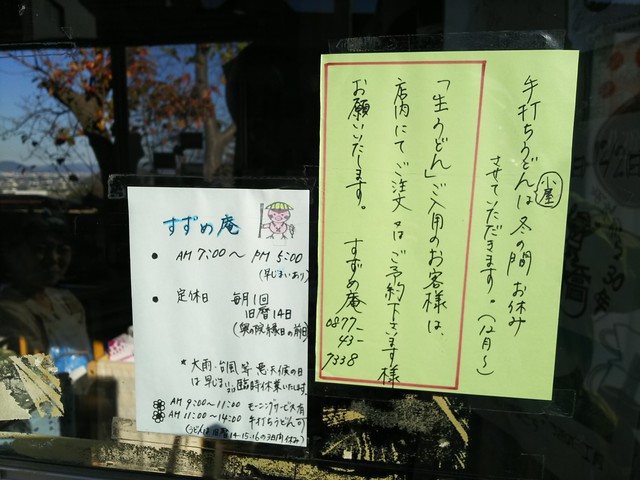 手打ちうどん小屋は冬の間お休み
させていただきます。(12月～)
「生うどん」ご入用のお客様は、
店内にてご注文又はご予約下さいます様
お願いいたします。
すずめ庵
0877-
43-
7338
すずめ庵
• AM 7:00～PM 5:00
(早じまいあり)
• 定休日 毎月1回
旧暦14日
(奥の院縁日の前日)
* 大雨・台風等悪天候の日
は早じまい、臨時休業いたします。
AM 9:00～11:00 モーニングサービス有
AM 11:00～14:00 手打ちうどん可
(うどんは旧暦14・15・16の3日間休み)